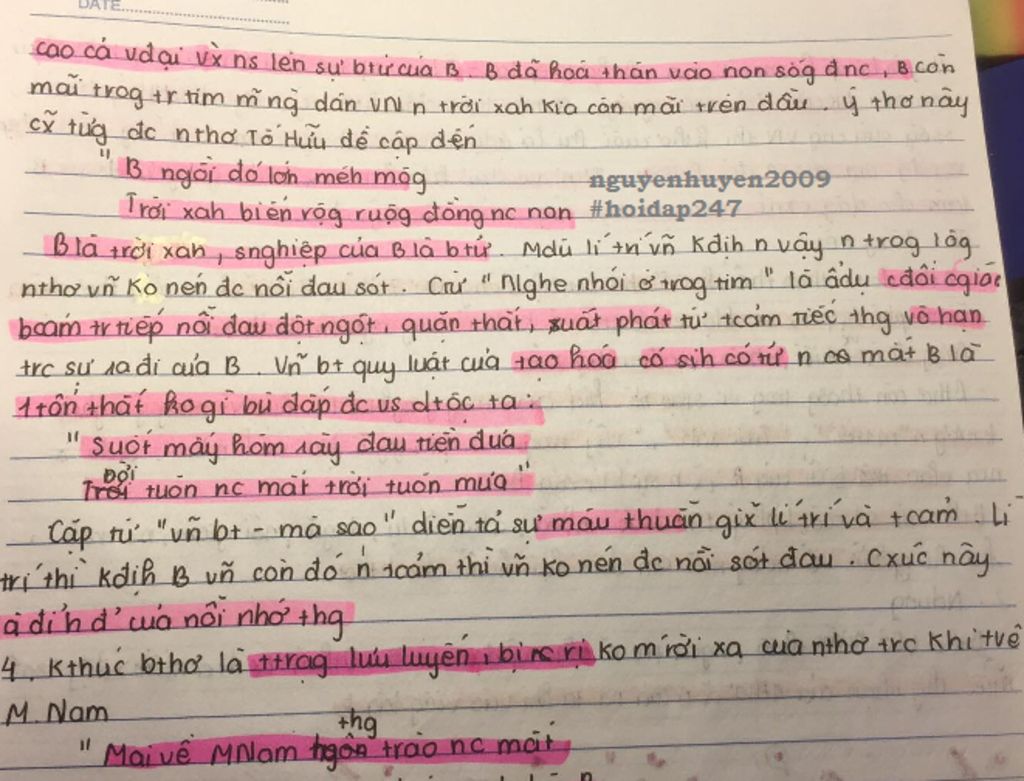 DATE
cao cả vđại vx ns lên sự btử của B. B đã hoá thân vào non sôg đnc, B còn
mãi trog tr tim mng dân VN n trời xah kia còn mãi trên đầu. ý thơ này
cx từg đc nthơ Tố Hữu đề cập đến
" B ngồi đó lớn mêh môg
nguyenhuyen2009
Trời xah biển rộg ruộg đồng nc non
#hoidap247
B là trời xah, snghiệp của B là btử. Mdù lí trí vẫn kđih n vậy n trog lòg
nthơ vẫn ko nén đc nỗi đau sót. Ctừ "Nghe nhói ở trog tim" là ẩdụ cđổi cgiác
bcảm tr tiếp nỗi đau đột ngột, quặn thắt, xuất phát từ tcảm tiếc thg vô hạn
trc sự ra đi của B. Vẫn bt quy luật của tạo hoá có sih có tử n mất B là
1 tổn thất ko gì bù đắp đc vs dtộc ta:
" Suốt mấy hôm rày đau tiễn đưa
Đời tuôn nc mắt trời tuôn mưa"
Cặp từ "vẫn bt - mà sao" diễn tả sự mâu thuẫn giữ lí trí và tcảm. Lí
trí thì kđih B vẫn còn đó n tcảm thì vẫn ko nén đc nỗi sót đau. Cxúc này
à đỉh đ' của nỗi nhớ thg
4. Kthúc bthơ là ttrạg lưu luyến, bịn rịn ko m rời xa của nthơ trc khi tvề
M. Nam
thg
" Mai về MNam trào nc mắt